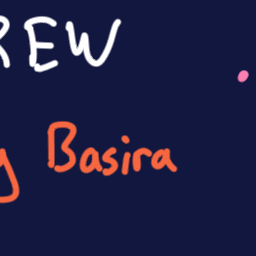 REW
y Basira